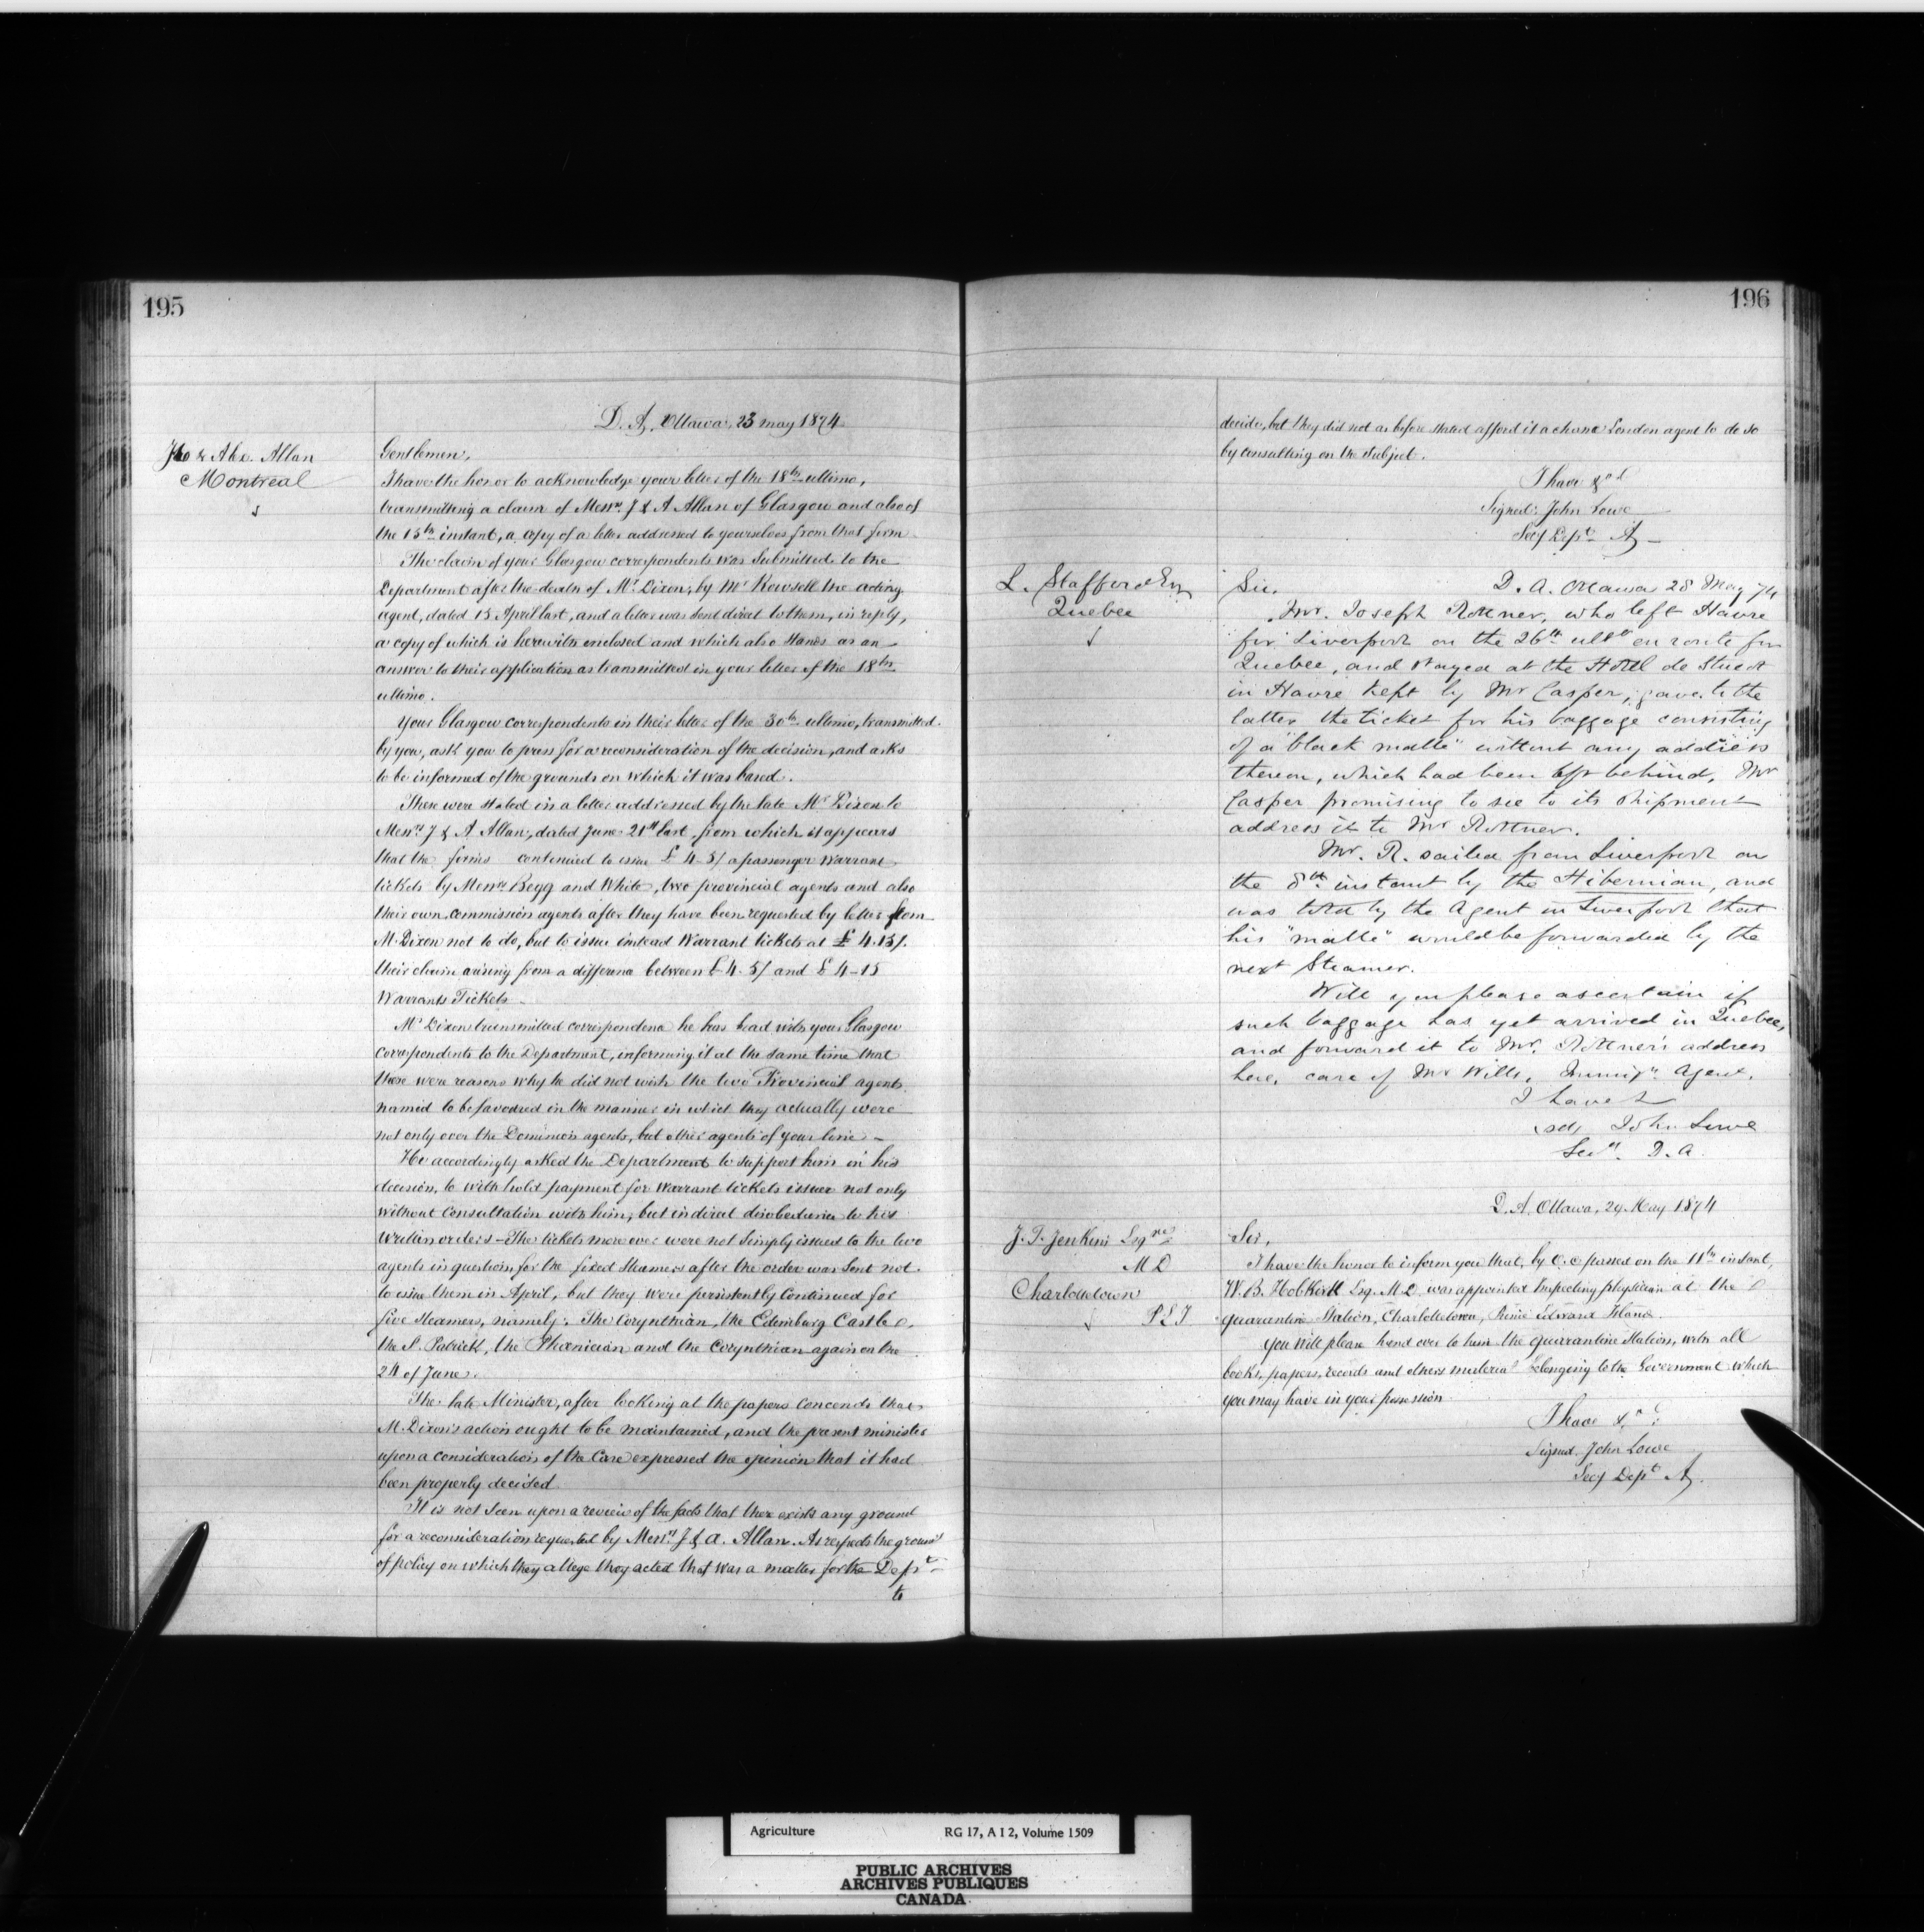 195
D. A. Ottawa, 23 May 1874
Alex. Allan
Montreal
Gentlemen,
I have the honor to acknowledge your letter of the 18th ultimo,
transmitting a claim of Messrs J & A Allan of Glasgow and also of
the 15th instant, a copy of a letter addressed to yourselves from that firm
The claim of your Glasgow correspondents was submitted to the
Department after the death of Mr Dixon, by Mr Rowsell the acting
agent, dated 15 April last, and a letter was sent direct to them, in reply,
a copy of which is herewith enclosed and which also stands as an
answer to their application as transmitted in your letter of the 18th
ultimo.
Your Glasgow correspondents in their letter of the 30th ultimo, transmitted
by you, ask you to press for a reconsideration of the decision, and asks
to be informed of the grounds on which it was based.
These were stated in a letter addressed by the late Mr Dixon to
Messrs J & A Allan, dated June 21st last from which it appears
that the firms continued to issue £ 4-5/ a passenger Warrant
tickets by Messrs Begg and White, two provincial agents and also
their own commission agents after they have been requested by letter from
M. Dixon not to do, but to issue instead Warrant tickets at £ 4.15/.
their claim arising from a difference between £ 4. 5/ and £ 4-15
Warrants Tickets
Mr Dixon transmitted correspondence he has had with your Glasgow
correspondents to the Department, informing it at the same time that
there were reasons why he did not wish the two Provincial agents
named to be favoured in the manner in which they actually were
not only over the Dominion agents, but other agents of your line –
He accordingly asked the Department to support him in his
decision, to with hold payment for Warrant tickets issued not only
without consultation with him, but in direct disobedience to his
written orders – The tickets more over were not simply issued to the two
agents in question for the fixed Steamers after the order was sent not
to issue them in April, but they were persistently continued for
five steamers, namely: The Corynthian, the Edinburg Castle,
the St Patrick, the Phoenician and the Corynthian again on the
24 of June.
The late Minister, after looking at the papers concends that
M. Dixon's action ought to be maintained, and the present minister
upon a consideration of the Case expressed the opinion that it had
been properly decided
It is not seen upon a review of the facts that there exists any ground
for a reconsideration requested by Messrs J & A. Allan. As respects the ground
of policy on which they allege they acted that was a matter for the Dept
to
196
decide, but they did not as before stated afford it a chance London agent to do so
by consulting on the subject.
I have &c
Signed: John Lowe
Secy Dept A
L. Stafford Esq
Quebec
D. A. Ottawa 28 May 74
Sir,
Mr. Joseph Rottner, who left Havre
for Liverpool on the 26th ulto en route for
Quebec, and stayed at the Hotel de
in Havre kept by Mr Casper, gave to the
latter the ticket for his baggage consisting
of a "black malle" without any address
thereon, which had been left behind, Mr
Casper promising to see to its shipment
address it to Mr Rottner.
Mr. R. sailed from Liverpool on
the 8th instant by the Hibernian, and
was told by the Agent in Liverpool that
his "malle" would be forwarded by the
next Steamer.
Will you please ascertain if
such baggage has yet arrived in Quebec,
and forward it to Mr. Rottner's address
here, care of Mr Wills, Immign. Agent.
I have &
sd, John Lowe
Secy. D. A.
D. A. Ottawa, 29 May 1874
J. T. Jenkins Esqre
M D
Charlottetown
P E I
Sir,
I have the honor to inform you that, by O. C passed on the 11th instant,
W. B. Hobkirk Esq. M.D. was appointed Inspecting physician at the
quarantine Station, Charlottetown, Prince Edward Island.
You will please hand over to him the quarrantine Station, with all
books, papers, records and others material belonging to the Government which
you may have in your possession
I have &c
Signed, John Lowe
Secy Dept A.
Agriculture
RG 17, A I 2, Volume 1509
PUBLIC ARCHIVES
ARCHIVES PUBLIQUES
CANADA